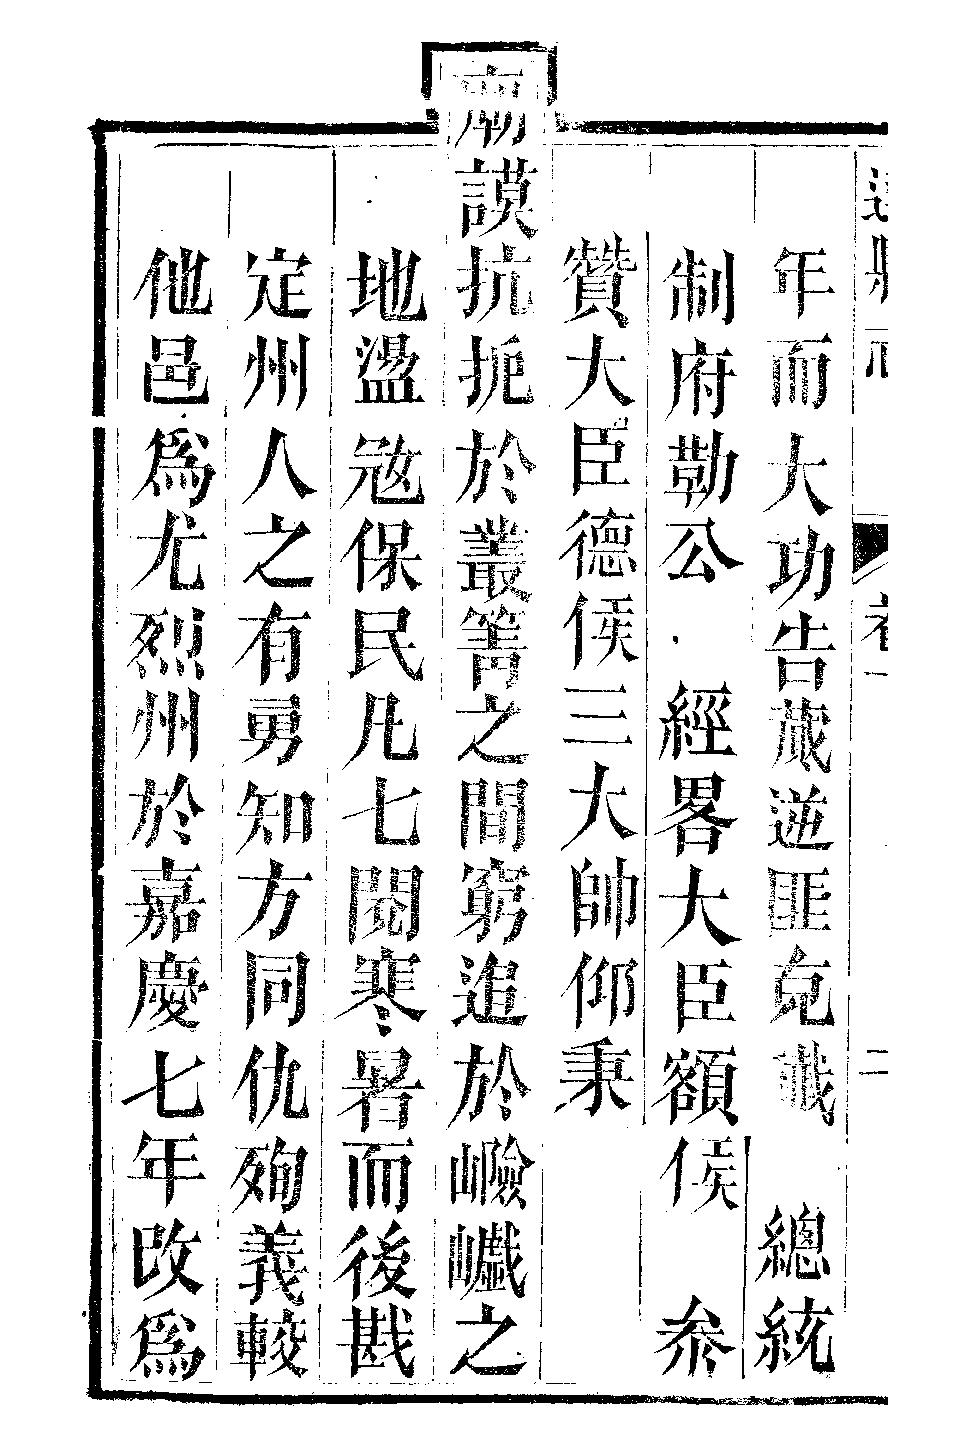 達縣志 卷一 二
年而大功告蕆逆匪克殲 總統
制府勒公 經畧大臣額侯 叅
贊大臣德侯三大帥仰秉
廟謨抗扼於叢箐之間窮追於嶮巇之
地盪保民凡七閱寒暑而後戡
定州人之有勇知方同仇殉義較
他邑爲尤烈州於嘉慶七年改爲